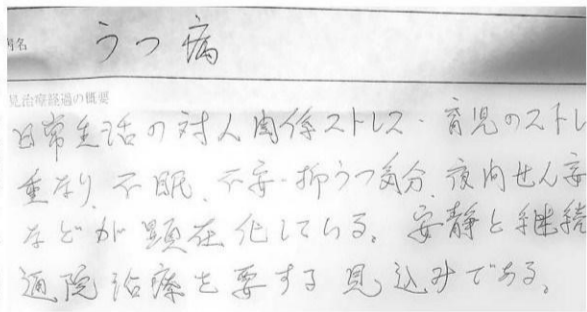 病名 うつ病
見治療経過の概要
日常生活の対人関係ストレス・育児のストレ
重なり、不眠、不安・抑うつ気分、夜間せん妄
などが顕在化している。安静と継続
通院治療を要する見込みである。